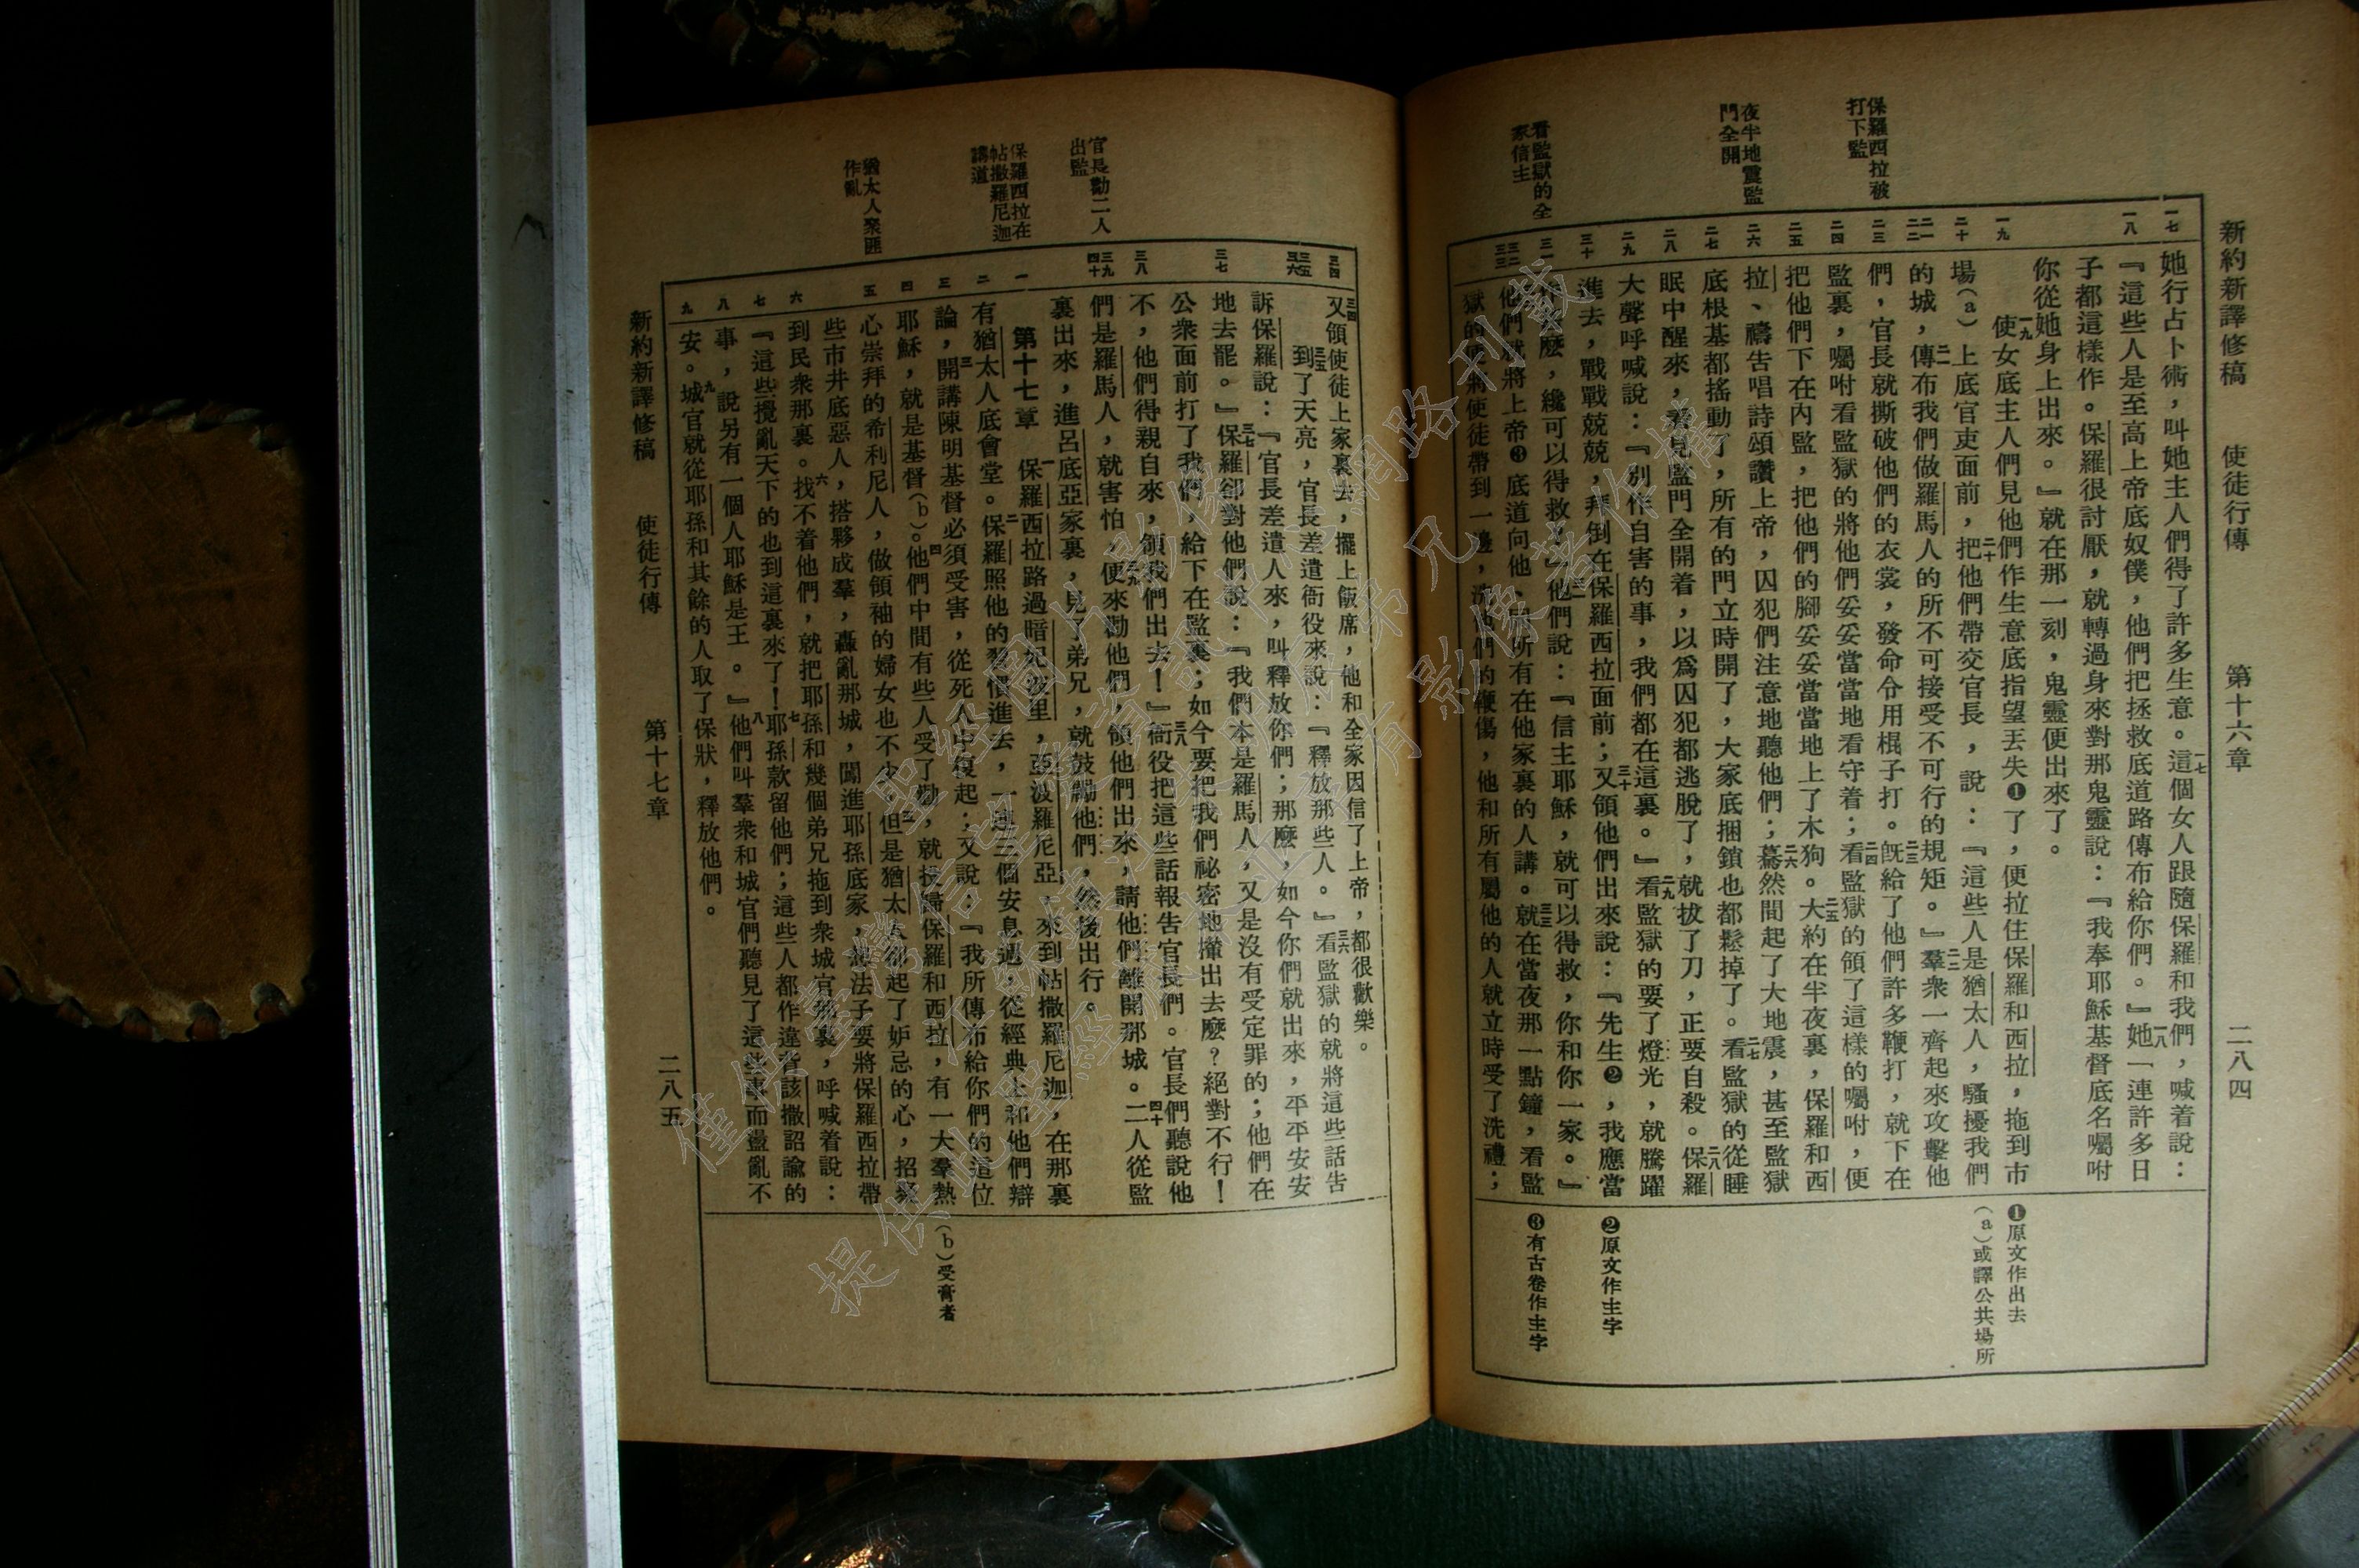 新約新譯修稿 使徒行傳 第十六章 二八四
保羅西拉被
打下監
夜半地震監
門全開
看監獄的全
家信主
她行占卜術，叫她主人們得了許多生意。一七這個女人跟隨保羅和我們，喊着說：
『這些人是至高上帝底奴僕，他們把拯救底道路傳布給你們。』一八她一連許多日
子都這樣作。保羅很討厭，就轉過身來對那鬼靈說：『我奉耶穌基督底名囑咐
你從她身上出來。』就在那一刻，鬼靈便出來了。
一九使女底主人們見他們作生意底指望丟失❶了，便拉住保羅和西拉，拖到市
場(a)上底官吏面前，二十把他們帶交官長，說：『這些人是猶太人，騷擾我們
的城，二一傳布我們做羅馬人的所不可接受不可行的規矩。』二二羣衆一齊起來攻擊他
們，官長就撕破他們的衣裳，發命令用棍子打。二三旣給了他們許多鞭打，就下在
監裏，囑咐看監獄的將他們妥妥當當地看守着；二四看監獄的領了這樣的囑咐，便
把他們下在內監，把他們的腳妥妥當當地上了木狗。二五大約在半夜裏，保羅和西
拉、禱告唱詩頌讚上帝，囚犯們注意地聽他們；二六驀然間起了大地震，甚至監獄
底根基都搖動了，所有的門立時開了，大家底捆鎖也都鬆掉了。二七看監獄的從睡
眠中醒來，看見監門全開着，以爲囚犯都逃脫了，就拔了刀，正要自殺。二八保羅
大聲呼喊說：『別作自害的事，我們都在這裏。』二九看監獄的要了燈光，就騰躍
進去，戰戰兢兢，拜倒在保羅西拉面前；三十又領他們出來說：『先生❷，我應當
麼，纔可以得救？』三一他們說：『信主耶穌，就可以得救，你和你一家。』
他們就將上帝❸底道向他、同所有在他家裏的人講。三三就在當夜那一點鐘，看監
獄的便將使徒帶到一邊，洗他們的鞭傷，他和所有屬他的人就立時受了洗禮；
❶原文作出去
(a)或譯公共場所
❷原文作主字
❸有古卷作主字
官長勸二人
出監
保羅西拉在
帖撒羅尼迦
講道
猶太人聚匪
作亂
三四又領使徒上家裏去，擺上飯席，他和全家因信了上帝，都很歡樂。
三五到了天亮，官長差遣衙役來說：『釋放那些人。』三六看監獄的就將這些話告
訴保羅說：『官長差遣人來，叫釋放你們；那麼，如今你們就出來，平平安安
地去罷。』三七保羅卻對他們說：『我們本是羅馬人，又是沒有受定罪的；他們在
公衆面前打了我們，給下在監裏；如今要把我們祕密地攆出去麼？絕對不行！
不，他們得親自來，領我們出去！』三八衙役把這些話報告官長們。官長們聽說他
們是羅馬人，就害怕，三九便來勸他們，領他們出來，請他們離開那城。四十二人從監
裏出來，進呂底亞家裏，見了弟兄，就鼓勵他們，然後出行。
第十七章 一保羅西拉路過暗妃波里，亞波羅尼亞，來到帖撒羅尼迦，在那裏
有猶太人底會堂。二保羅照他的習慣進去，一連三個安息週，從經典上和他們辯
論，三開講陳明基督必須受害，從死人中復起；又說：『我所傳布給你們的這位
耶穌，就是基督(b)。』四他們中間有些人受了勸，就投歸保羅和西拉，有一大羣熱
心崇拜的希利尼人，做領袖的婦女也不少。五但是猶太人卻起了妒忌的心，招聚
些市井底惡人，搭夥成羣，轟亂那城，闖進耶孫底家，想法子要將保羅西拉帶
到民衆那裏。六找不着他們，就把耶孫和幾個弟兄拖到衆城官那裏，呼喊着說：
『這些攪亂天下的也到這裏來了！七耶孫款留他們；這些人都作違背該撒詔諭的
事，說另有一個人耶穌是王。』八他們叫羣衆和城官們聽見了這些事而盡亂不
安。九城官就從耶孫和其餘的人取了保狀，釋放他們。
(b)受膏者
新約新譯修稿 使徒行傳 第十七章 二八五